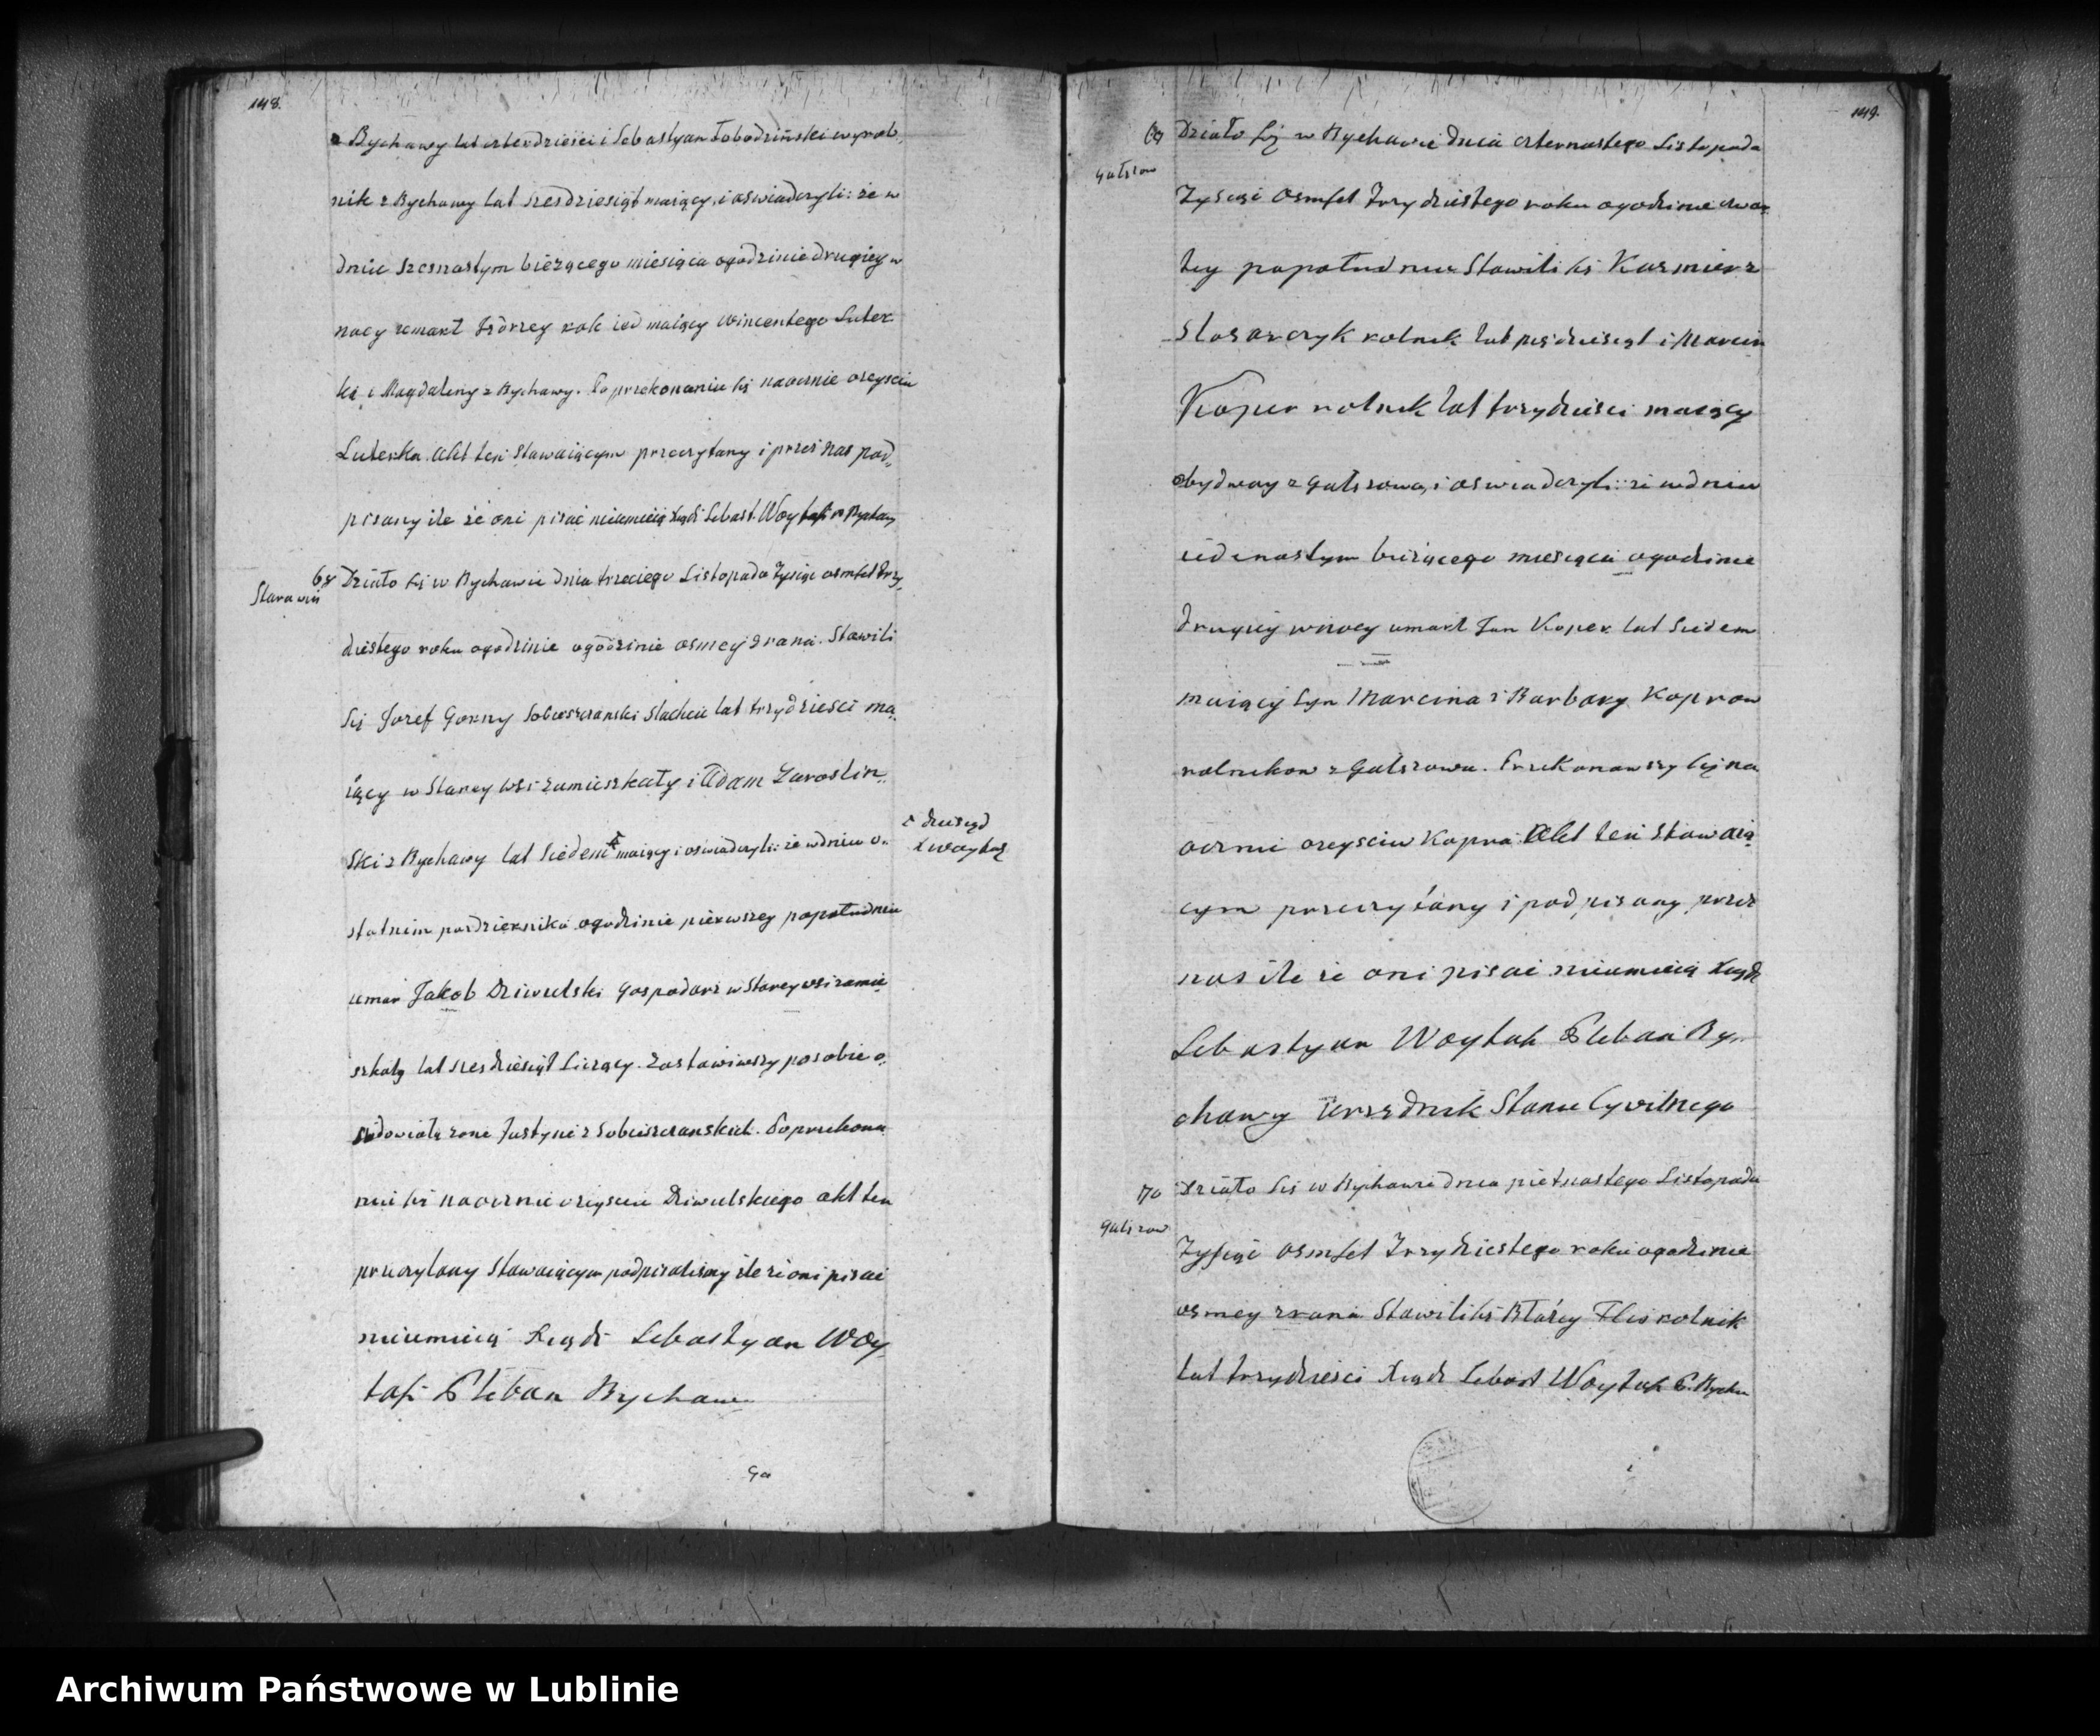 148.
z Bychawy lat czterdzieści i Sebastyan Łobodziński wyrob„
nik z Bychawy lat szesdziesiąt maiący, i oswiadczyli: że w
dniu szesnastym bieżącego miesiąca ogodzinie drugiey w
nocy zmarł Jędrzey rok ied maiący Wincentego Luter
ka i Magdaleny z Bychawy. Po przekonaniu się naocznie o zeysciu
Luterka Akt ten Stawaiącym przeczytany i przez nas pod„
pisany ile że oni pisać nieumieią Xiądz Sebast. Woytaś P Bychaw
68 Działo się w Bychawie dnia trzeciego Listopada Tysiąc osmset trzy„
Starawieś
dziestego roku ogodzinie ogodzinie osmey z rana. Stawili
się Jozef Gorny Sobieszczanski Slachcic lat trzydziesci ma„
iący w Starey wsi zamieszkały i Adam Zaroslin„
ski z Bychawy lat Siedem maiący i oswiadczyli: że w dniu o„
dziesiąt
X Woytaś
statnim pazdziernika ogodzinie pierwszey popołudniu
umar Jakob Dziwulski Gospodarz w Starey wsi zamie
szkały lat szesdziesiąt Liczący. Zostawiwszy po sobie o„
wdowiałą zone Justyne z Sobieszczanskich. Po przekona
niu się naocznie o zeysciu Dziwulskiego akt ten
przeczytany Stawaiącym podpisalismy ile że oni pisać
nieumieią Xiądz Sebastyan Woy„
taś Pleban Bychaw
Ga
149.
69 Działo się w Bychawie dnia czternastego Listopada
Gałęzow
Tysiąc Osmset Trzydziestego roku ogodzinie czwar
tey popołudniu Stawili się Kazmierz
Slosarczyk rolnik lat pięcdziesiąt i Marcin
Koper rolnik lat trzydziesci maiący
obydway z Gałęzowa, i oswiadczyli: że w dniu
iedenastym bieżącego miesiąca ogodzinie
drugiey w nocy umarł Jan Koper lat Siedem
maiący Syn Marcina i Barbary Koprow
rolnikow z Gałęzowa. Przekonawszy się na
ocznie o zeysciu Kopra Akt ten Stawaią
cym przeczytany i podpisany przez
nas ile że oni pisać nieumieią Xiądz
Sebastyan Woytaś Pleban By„
chawy Urzędnik Stanu Cywilnego
70 Działo się w Bychawie dnia piętnastego Listopada
Gałęzow
Tysiąc Osmset Trzydziestego roku ogodzinie
osmey z rana Stawili się Błażey Flis rolnik
lat trzydziesci Xiądz Sebast Woytaś P. Bycha
Archiwum Państwowe w Lublinie